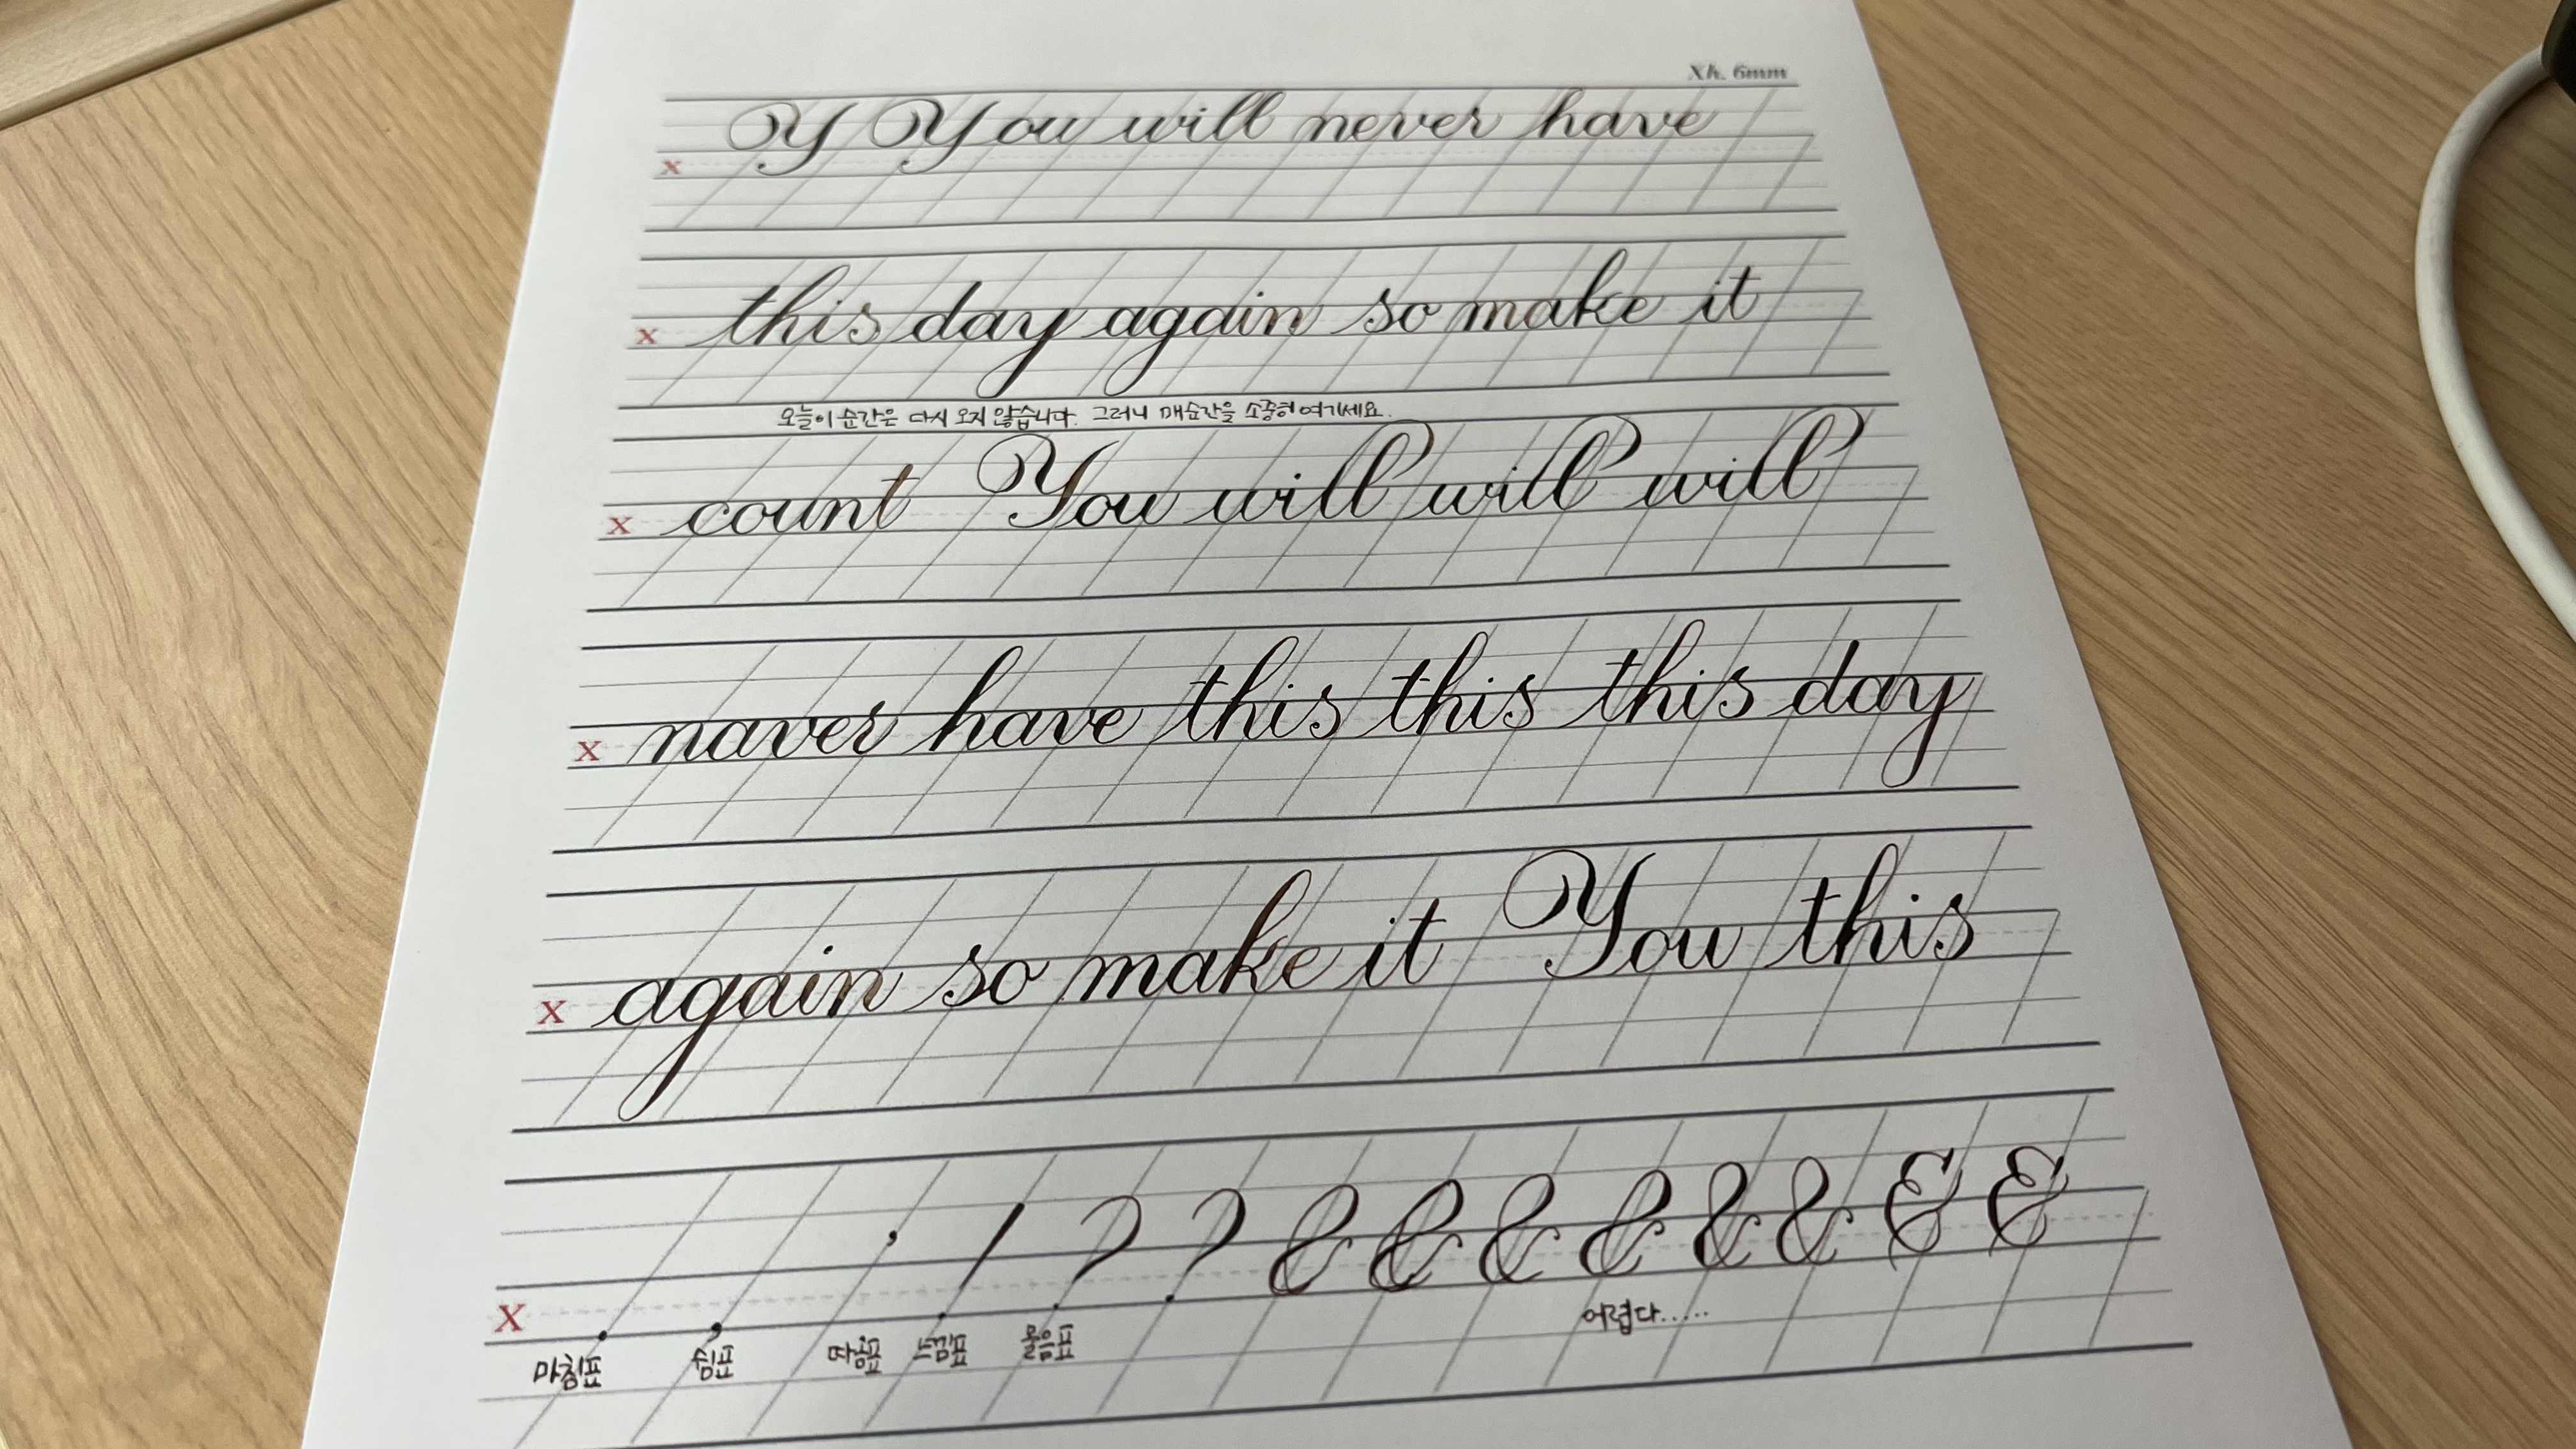 Xh. 6mm
Y You will never have
x
this day again so make it
x
오늘이 순간은 다시 오지 않습니다. 그러니 매순간을 소중히 여기세요.
count You will will will
x
naver have this this this day
x
again so make it You this
x
. , ' ! ? ? & & & & & & & &
x
마침표 쉼표 따옴표 느낌표 물음표 어렵다.....